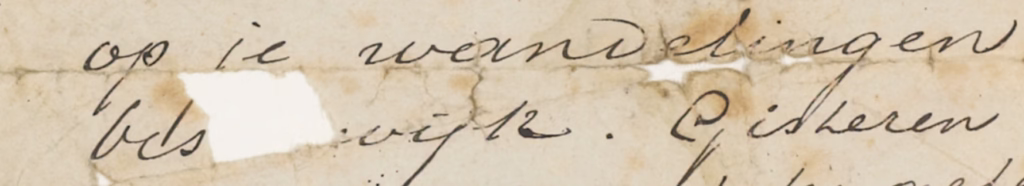 op je wandelingen
bds wijk. Gisteren